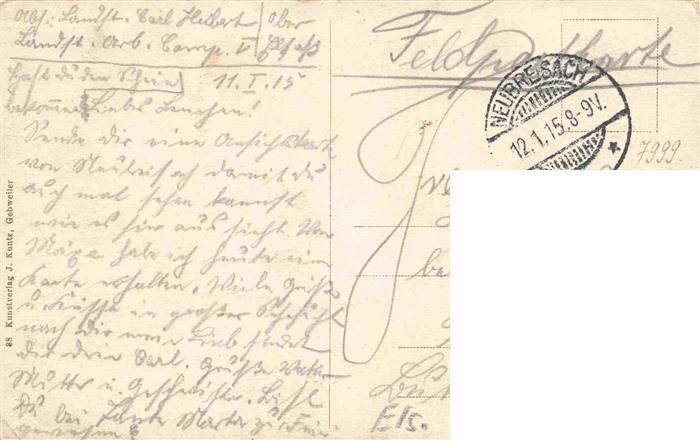 Abs: Landst. Carl Hubert Ober
Landst. Arb. Comp. V Elsaß
Hast du den Schein
bekommen 11.I.15
Liebes Lenchen!
Sende dir eine Ansichtskarte
von Neubreisach damit du
auch mal sehen kannst
wie es hier aus sieht. Von
Maxe habe ich heute eine
Karte erhalten. Viele Grüße
u. Küsse in großer Sehnsucht
nach dir mein Lieb sendet
dir dein Carl. Grüße Vater
Mutter u. Geschwister. Bist
Du bei Tante Marta zu
gewesen
Feldpostkarte
NEUBREISACH
12.1.15.8-9V.
7999.
Els.
88 Kunstverlag J. Kuntz, Gebweiler